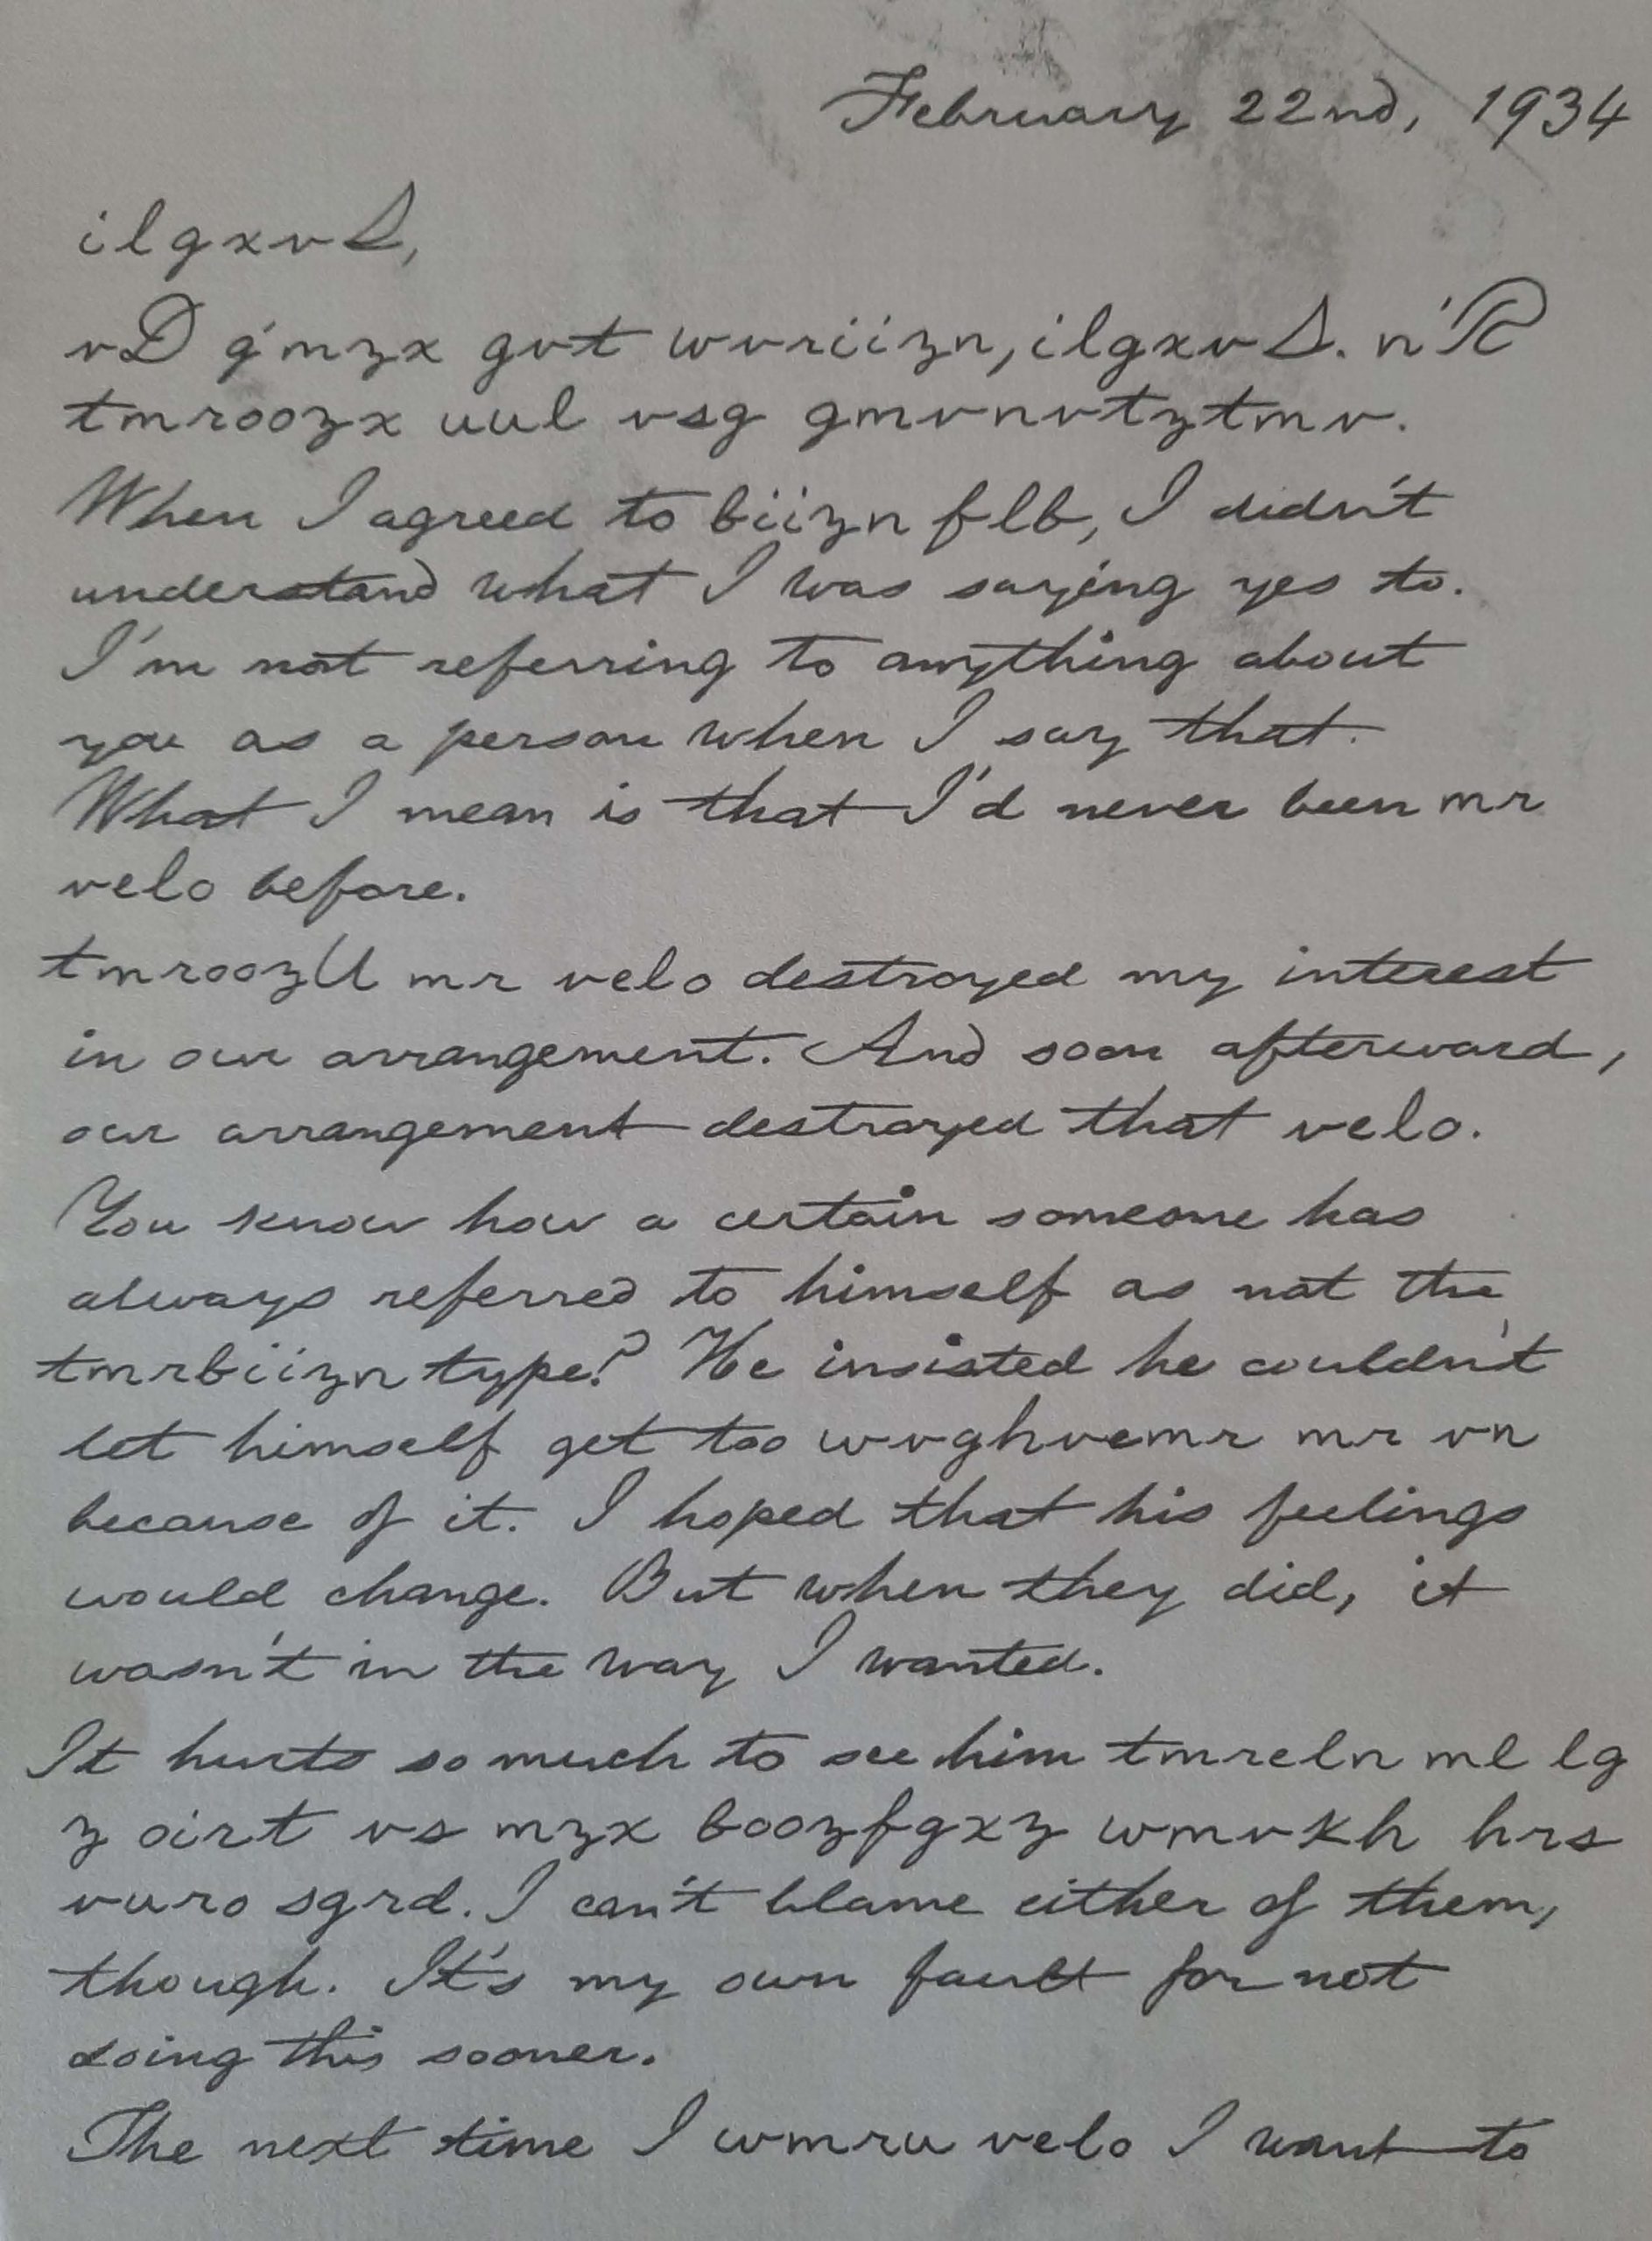 February 22nd, 1934
ilgxvS,
vD g'mzx gvt wvriizn, ilgxvS. n'R
tmroozx uul vsg gmvnvtztmv.
When I agreed to biizn flb, I didn't
understand what I was saying yes to.
I'm not referring to anything about
you as a person when I say that.
What I mean is that I'd never been mr
velo before.
tmroozU mr velo destroyed my interest
in our arrangement. And soon afterward,
our arrangement destroyed that velo.
You know how a certain someone has
always referred to himself as not the
tmrbiizn type? He insisted he couldn't
let himself get too wvghvemr mr vn
because of it. I hoped that his feelings
would change. But when they did, it
wasn't in the way I wanted.
It hurts so much to see him tmreln ml lg
z oirt vs mzx boozfgxz wmvkh hrs
vuro sgrd. I can't blame either of them,
though. It's my own fault for not
doing this sooner.
The next time I wmru velo I want to